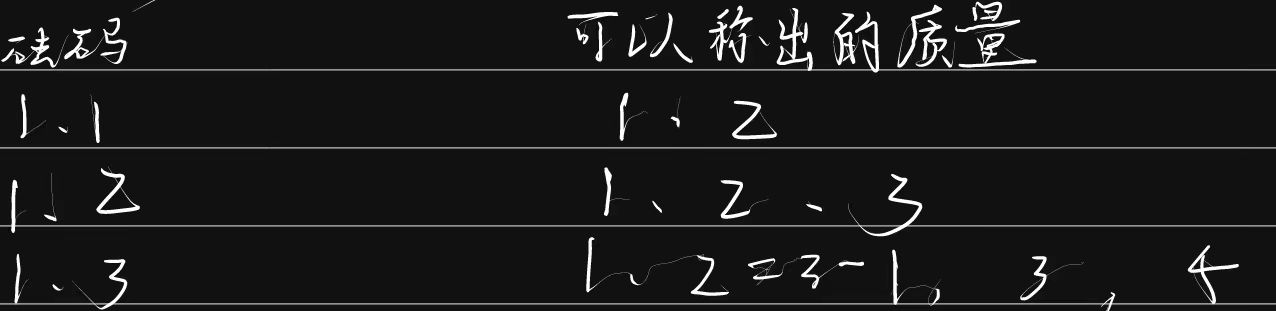 砝码 可以称出的质量
1、1 1、2
1、2 1、2、3
1、3 1、2=3-1，3，4